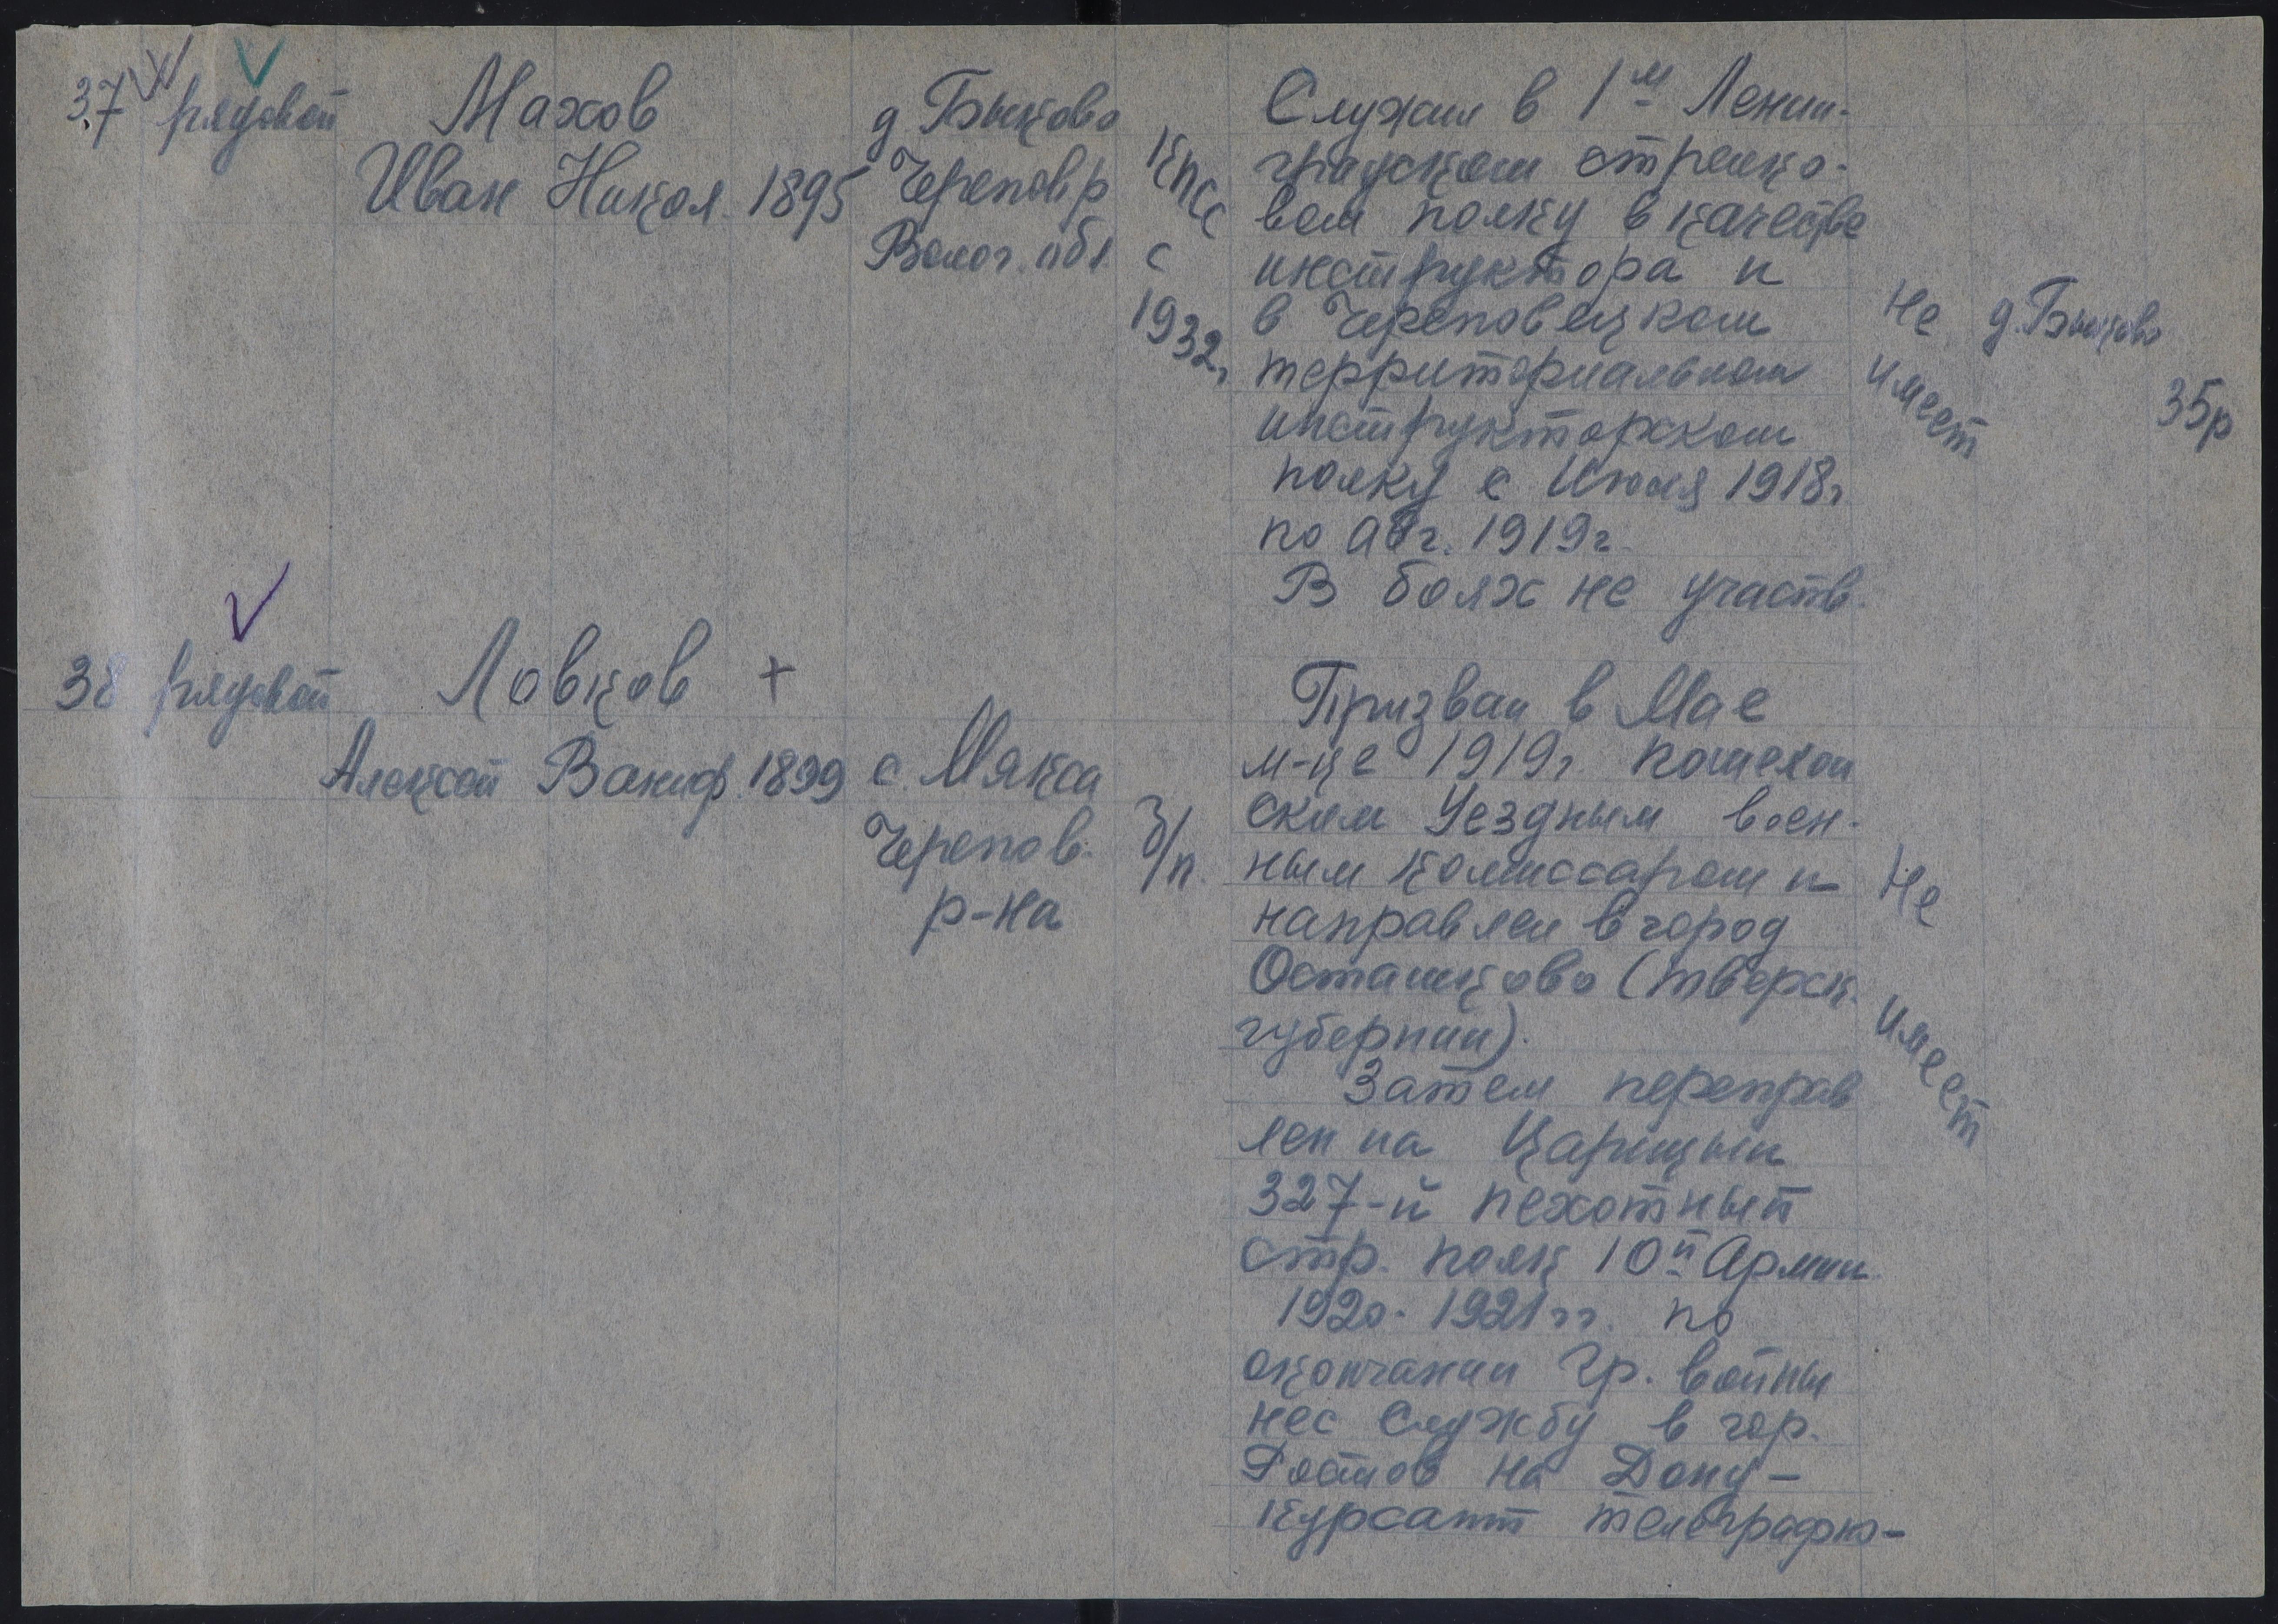 37 рядовой
Махов
Иван Никол. 1895
д. Быково
Черепов р
Волог. обл.
КПСС
с
1932г
Служил в 1м Ленин-
градском стрелко-
вом полку в качестве
инструктора и
в Череповецком
территориальном
инструкторском
полку с Июля 1918г
по авг. 1919г.
В боях не участв.
Не
имеет
д. Быково
35р
38 рядовой
Ловков +
Алексей Вониф. 1899
с. Мякса
Черепов.
р-на
б/п.
Призван в Мае
м-це 1919г. Пошехон
ским Уездным воен-
ным комиссаром и
направлен в город
Осташково (Тверск.
губернии).
Затем переправ
лен на Царицын
327-й пехотный
стр. полк 10й Армии
1920-1921 гг. по
окончании Гр. войны
нес службу в гор.
Ростов на Дону-
курсант телеграфно-
Не
имеет